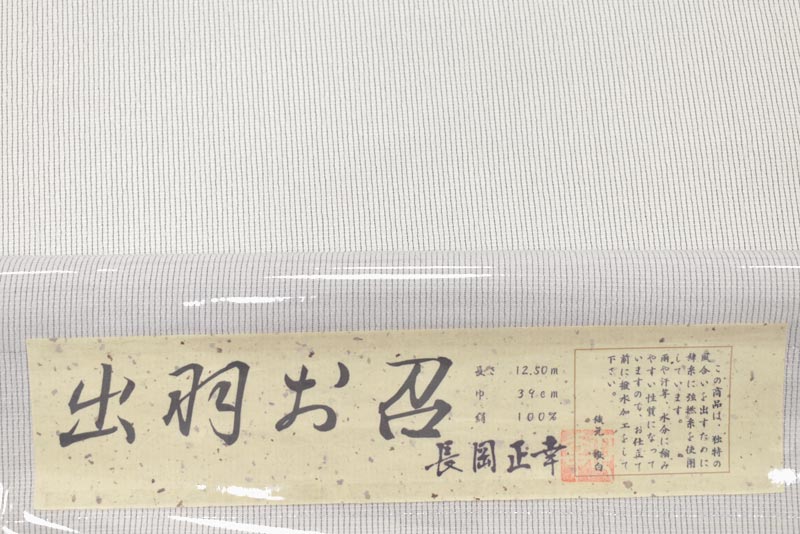 出羽お召
長さ 12.50m
巾 39cm
絹 100%
長岡正幸
この商品は、独特の
風合いを出すために
緯糸に強撚糸を使用
しています。
雨や汗等、水分に縮み
やすい性質になって
いますので、お仕立て
前に撥水加工をして
下さい。
織元 敬白